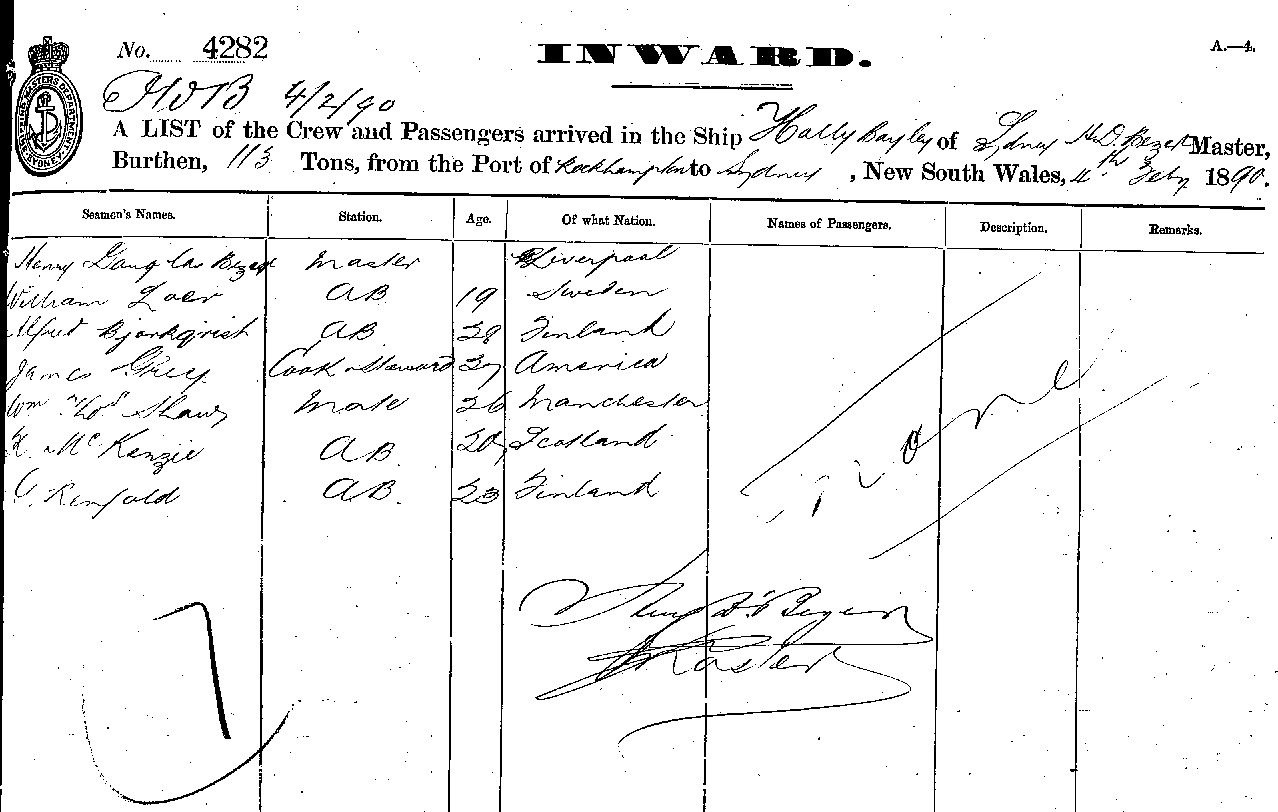 No. 4282
INWARD.
A.—4.
4/2/90
A LIST of the Crew and Passengers arrived in the Ship Hally Bayley of Sydney H.D. Bezer Master,
Burthen, 113 Tons, from the Port of Rockhampton to Sydney, New South Wales, 4th Feby 1890.
Seamen's Names. Station. Age. Of what Nation. Names of Passengers. Description. Remarks.
Henry Douglas Bezer Master Liverpool
William AB 19 Sweden
Alfred Bjorkqvist AB 28 Finland
James Grey Cook & Steward 37 America
Wm Shaw Mate 26 Manchester
McKenzie AB 20 Scotland
AB 23 Finland
None
7
Master